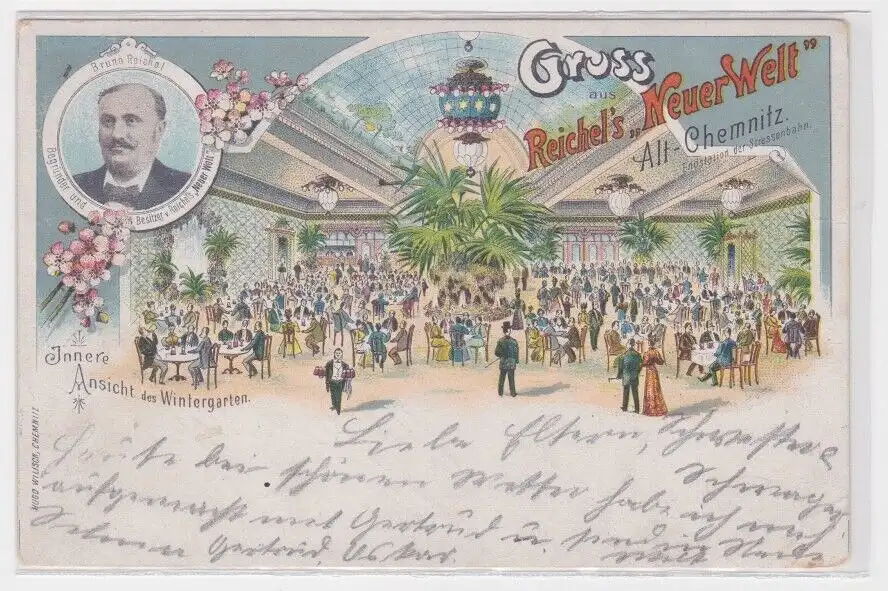 Gruss
aus
Reichel's „Neuer Welt"
Alt-Chemnitz.
Endstation der Strassenbahn.
Bruno Reichel
Begründer und Besitzer v. Reichels „Neuer Welt"
Innere
Ansicht des Wintergarten.
HUGO WILISCH, CHEMNITZ
Liebe Eltern, Schwester
Schwager
Heute bei schönen Wetter habe ich mich
aufgemacht mit Gertrud u. sind in
Gertrud, Oskar.